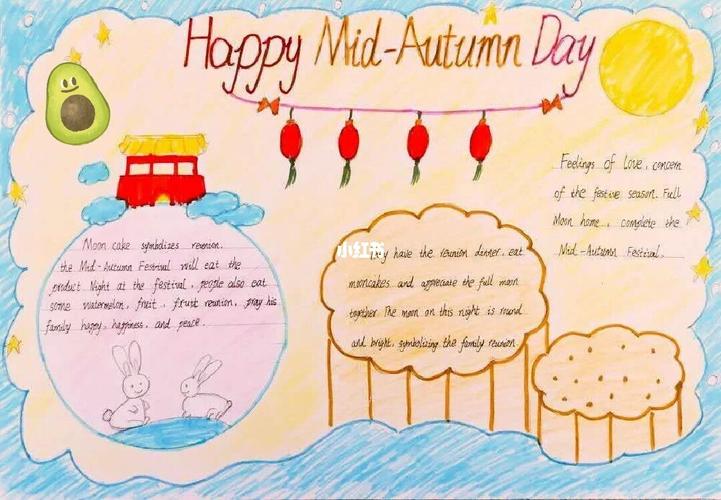 Happy Mid-Autumn Day
Feelings of Love, concern
of the festive season. Full
Moon home, complete the
Mid-Autumn Festival.
Moon cake symbolizes reunion.
the Mid-Autumn Festival will eat the
product Night at the festival, people also eat
some watermelon, fruit, fruit reunion, pray his
family happy, happiness, and peace.
小红书
have the reunion dinner, eat
mooncakes and appreciate the full moon
together. The moon on this night is round
and bright, symbolizing the family reunion